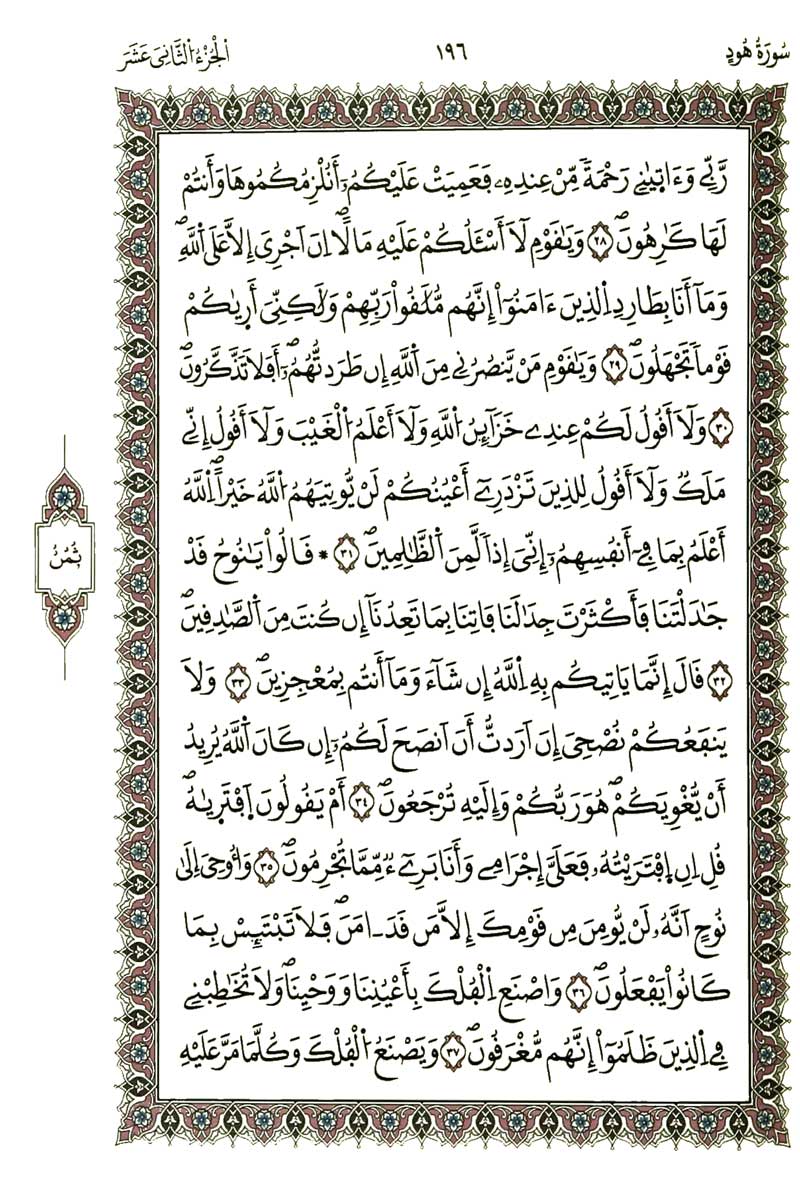 سُورَةُ هُودٍ ١٩٦ اَلْجُزْءُ الثَّانِيَ عَشَرَ
رَّبِّے وَءَاتِيٰنِے رَحْمَةٗ مِّنْ عِندِهِۦ فَعَمِيَتْ عَلَيْكُمُۥٓ أَنُلْزِمُكُمُوهَا وَأَنتُمْ
لَهَا كَٰرِهُونَۖ ٢٨ وَيَٰقَوْمِ لَآ أَسْـَٔلُكُمْ عَلَيْهِ مَالًاۖ اِنَ اَجْرِيَ إِلَّا عَلَى اَللَّهِۖ
وَمَآ أَنَا بِطَارِدِ اِلذِينَ ءَامَنُوٓاْۖ إِنَّهُم مُّلَٰقُواْ رَبِّهِمْ وَلَٰكِنِّيَ أَر۪يٰكُمْ
قَوْماٗ تَجْهَلُونَۖ ٢٩ وَيَٰقَوْمِ مَنْ يَّنصُرُنِے مِنَ اَللَّهِ إِن طَرَدتُّهُمُۥٓۖ أَفَلَا تَذَّكَّرُونَۖ
٣٠ وَلَآ أَقُولُ لَكُمْ عِندِے خَزَآئِنُ اُللَّهِ وَلَآ أَعْلَمُ اُلْغَيْبَ وَلَآ أَقُولُ إِنِّے
مَلَكٞ وَلَآ أَقُولُ لِلذِينَ تَزْدَرِےٓ أَعْيُنُكُمْ لَنْ يُّوتِيَهُمُ اُللَّهُ خَيْراًۖ اِللَّهُ
أَعْلَمُ بِمَا فِےٓ أَنفُسِهِمُۥٓ إِنِّيَ إِذاٗ لَّمِنَ اَلظَّٰلِمِينَۖ ٣١ * قَالُواْ يَٰنُوحُ قَدْ
جَٰدَلْتَنَا فَأَكْثَرْتَ جِدَٰلَنَا فَاتِنَا بِمَا تَعِدُنَآ إِن كُنتَ مِنَ اَلصَّٰدِقِينَۖ
٣٢ قَالَ إِنَّمَا يَاتِيكُم بِهِ اِللَّهُ إِن شَآءَ وَمَآ أَنتُم بِمُعْجِزِينَۖ ٣٣ وَلَا
يَنفَعُكُمْ نُصْحِيَ إِنَ اَرَدتُّ أَنَ اَنصَحَ لَكُمُۥٓ إِن كَانَ اَللَّهُ يُرِيدُ
أَنْ يُّغْوِيَكُمْۖ هُوَ رَبُّكُمْ وَإِلَيْهِ تُرْجَعُونَۖ ٣٤ أَمْ يَقُولُونَ اَفْتَر۪يٰهُۖ
قُلِ اِنِ اِفْتَرَيْتُهُۥ فَعَلَيَّ إِجْرَامِے وَأَنَا بَرِےٓءٞ مِّمَّا تُجْرِمُونَۖ ٣٥ وَأُوحِيَ إِلَىٰ
نُوحٍ اَنَّهُۥ لَنْ يُّومِنَ مِن قَوْمِكَ إِلَّا مَن قَدَ ـ امَنَۖ فَلَا تَبْتَئِسْ بِمَا
كَانُواْ يَفْعَلُونَۖ ٣٦ وَاصْنَعِ اِلْفُلْكَ بِأَعْيُنِنَا وَوَحْيِنَاۖ وَلَا تُخَٰطِبْنِے
فِے اِلذِينَ ظَلَمُوٓاْ إِنَّهُم مُّغْرَقُونَۖ ٣٧ وَيَصْنَعُ اُلْفُلْكَ وَكُلَّمَا مَرَّ عَلَيْهِ
ثُمُنُ